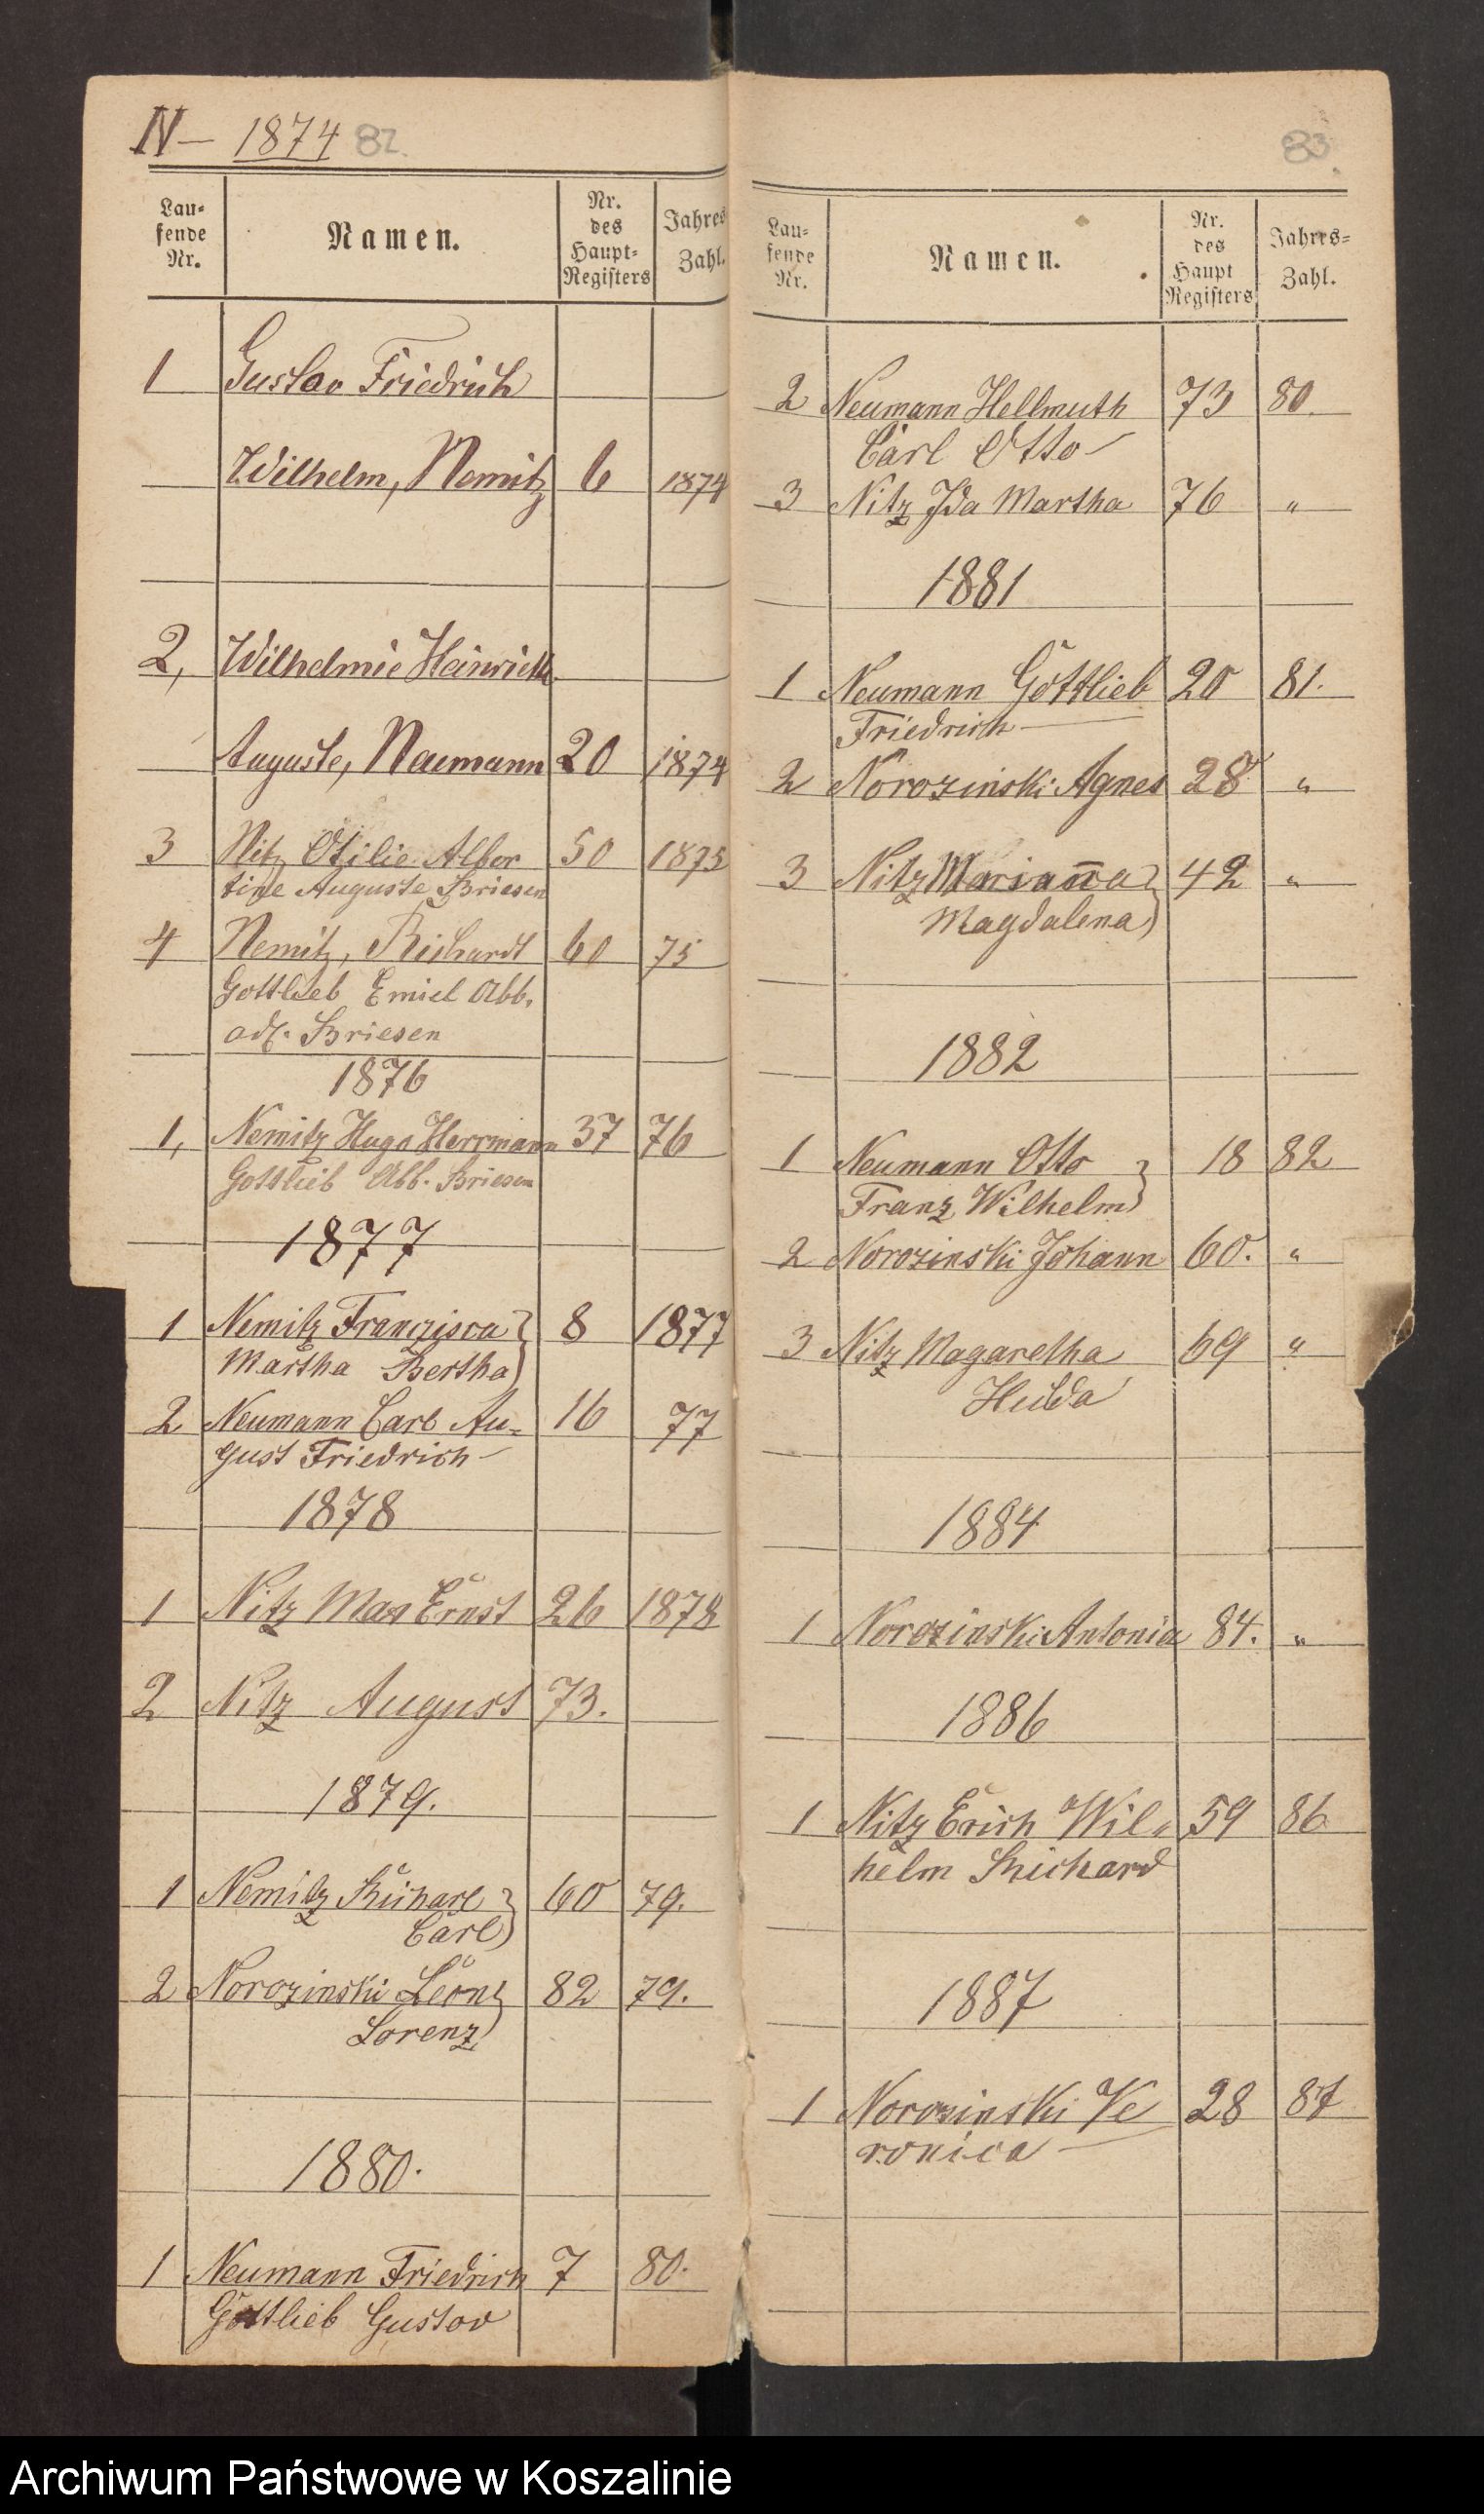 N- 1874 82
Lau-
fende
Nr.
Namen.
Nr.
des
Haupt-
Registers
Jahres
Zahl.
1 Gustav Friedrich
Wilhelm, Nemitz 6 1874
2, Wilhelmie Heinriette
Auguste, Neumann 20 1874
3 Nitz Otilie Alber 50 1875
tine Auguste Briesen
4 Nemitz, Richardt 60 75
Gottlieb Emiel Abb.
adl. Briesen
1876
1, Nemitz Hugo Herrmann 37 76
Gottlieb Abb. Briesen
1877
1 Nemitz Francisca 8 1877
Martha Bertha
2 Neumann Carl Au- 16 77
gust Friedrich
1878
1 Nitz Max Ernst 26 1878
2 Nitz August 73.
1879.
1 Nemitz 60 79.
Carl
2 Norozinski Leon 82 79.
Lorenz
1880.
1 Neumann Friedrich 7 80.
Gottlieb Gustav
83
Lau-
fende
Nr.
Namen.
Nr.
des
Haupt
Registers
Jahres-
Zahl.
2 Neumann Hellmuth 73 80.
Carl Otto
3 Nitz Ida Martha 76 "
1881
1 Neumann Gottlieb 20 81.
Friedrich
2 Norozinski Agnes 28 "
3 Nitz Marian̅a 42 "
Magdalena
1882
1 Neumann Otto 18 82
Franz Wilhelm
2 Norozinski Johann 60. "
3 Nitz Magaretha 69 "
Hulda
1884
1 Norozinski Antonia 84. "
1886
1 Nitz Erich Wil- 59 86
helm Richard
1887
1 Norozinski Ve 28 87
ronica
Archiwum Państwowe w Koszalinie